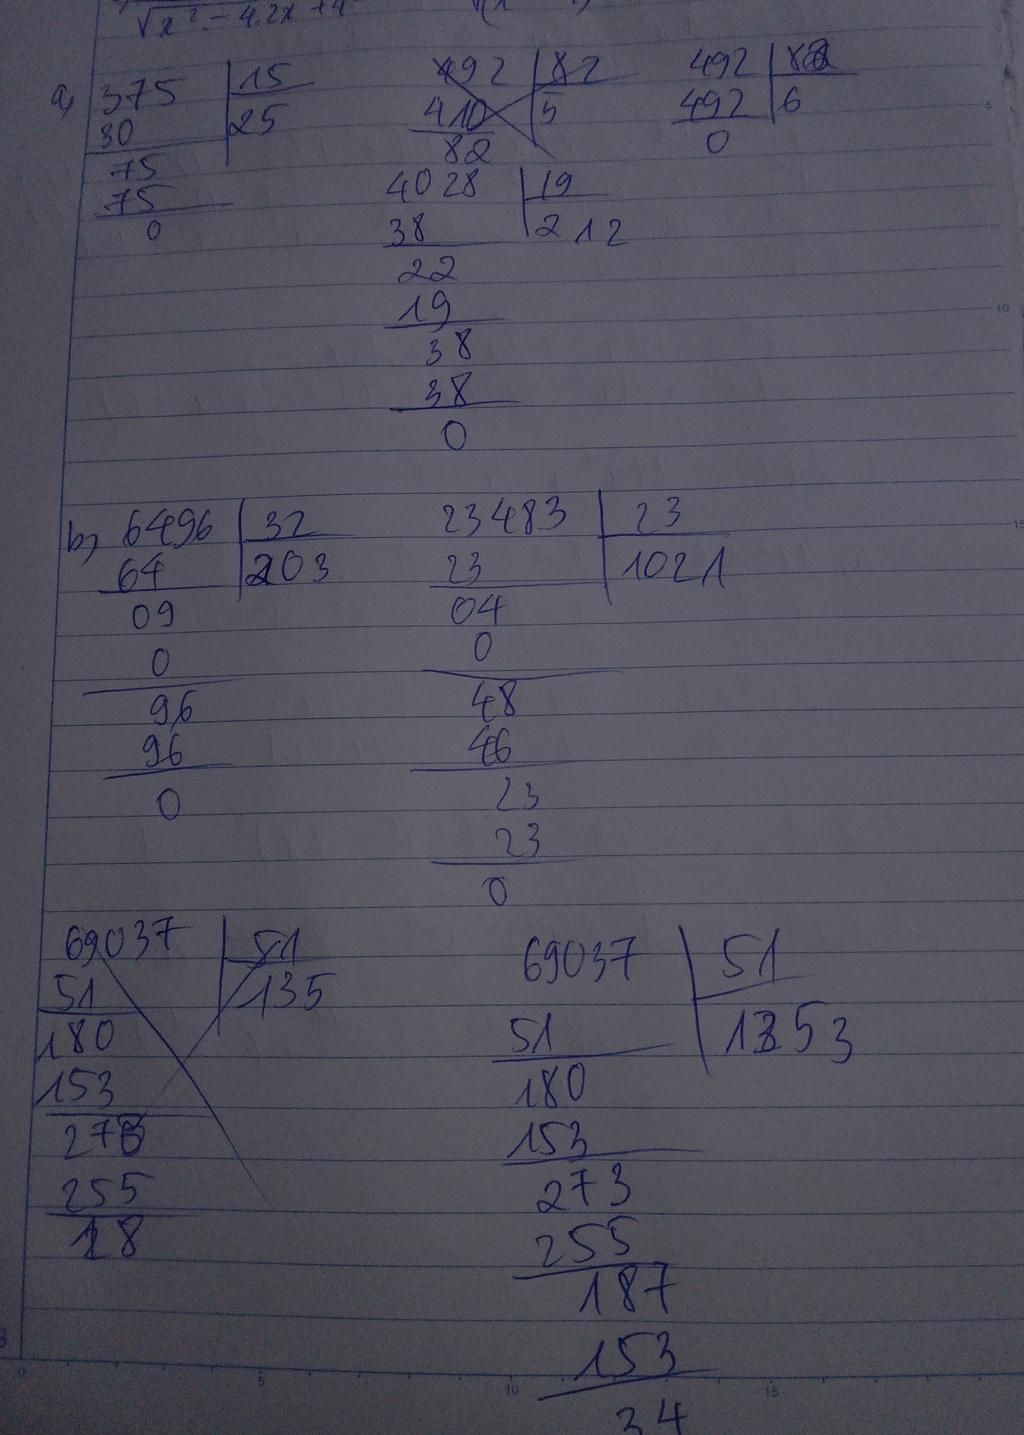 √x² - 4.2x + 4
a, 375 | 15
30 | 25
75
75
0
492 | 82
410 | 5
82
492 | 82
492 | 6
0
4028 | 19
38 | 212
22
19
38
38
0
b, 6496 | 32
64 | 203
09
0
96
96
0
23483 | 23
23 | 1021
04
0
48
46
23
23
0
69037 | 51
51 | 135
180
153
273
255
18
69037 | 51
51 | 1353
180
153
273
255
187
153
34
5
10
15
0
5
10
15